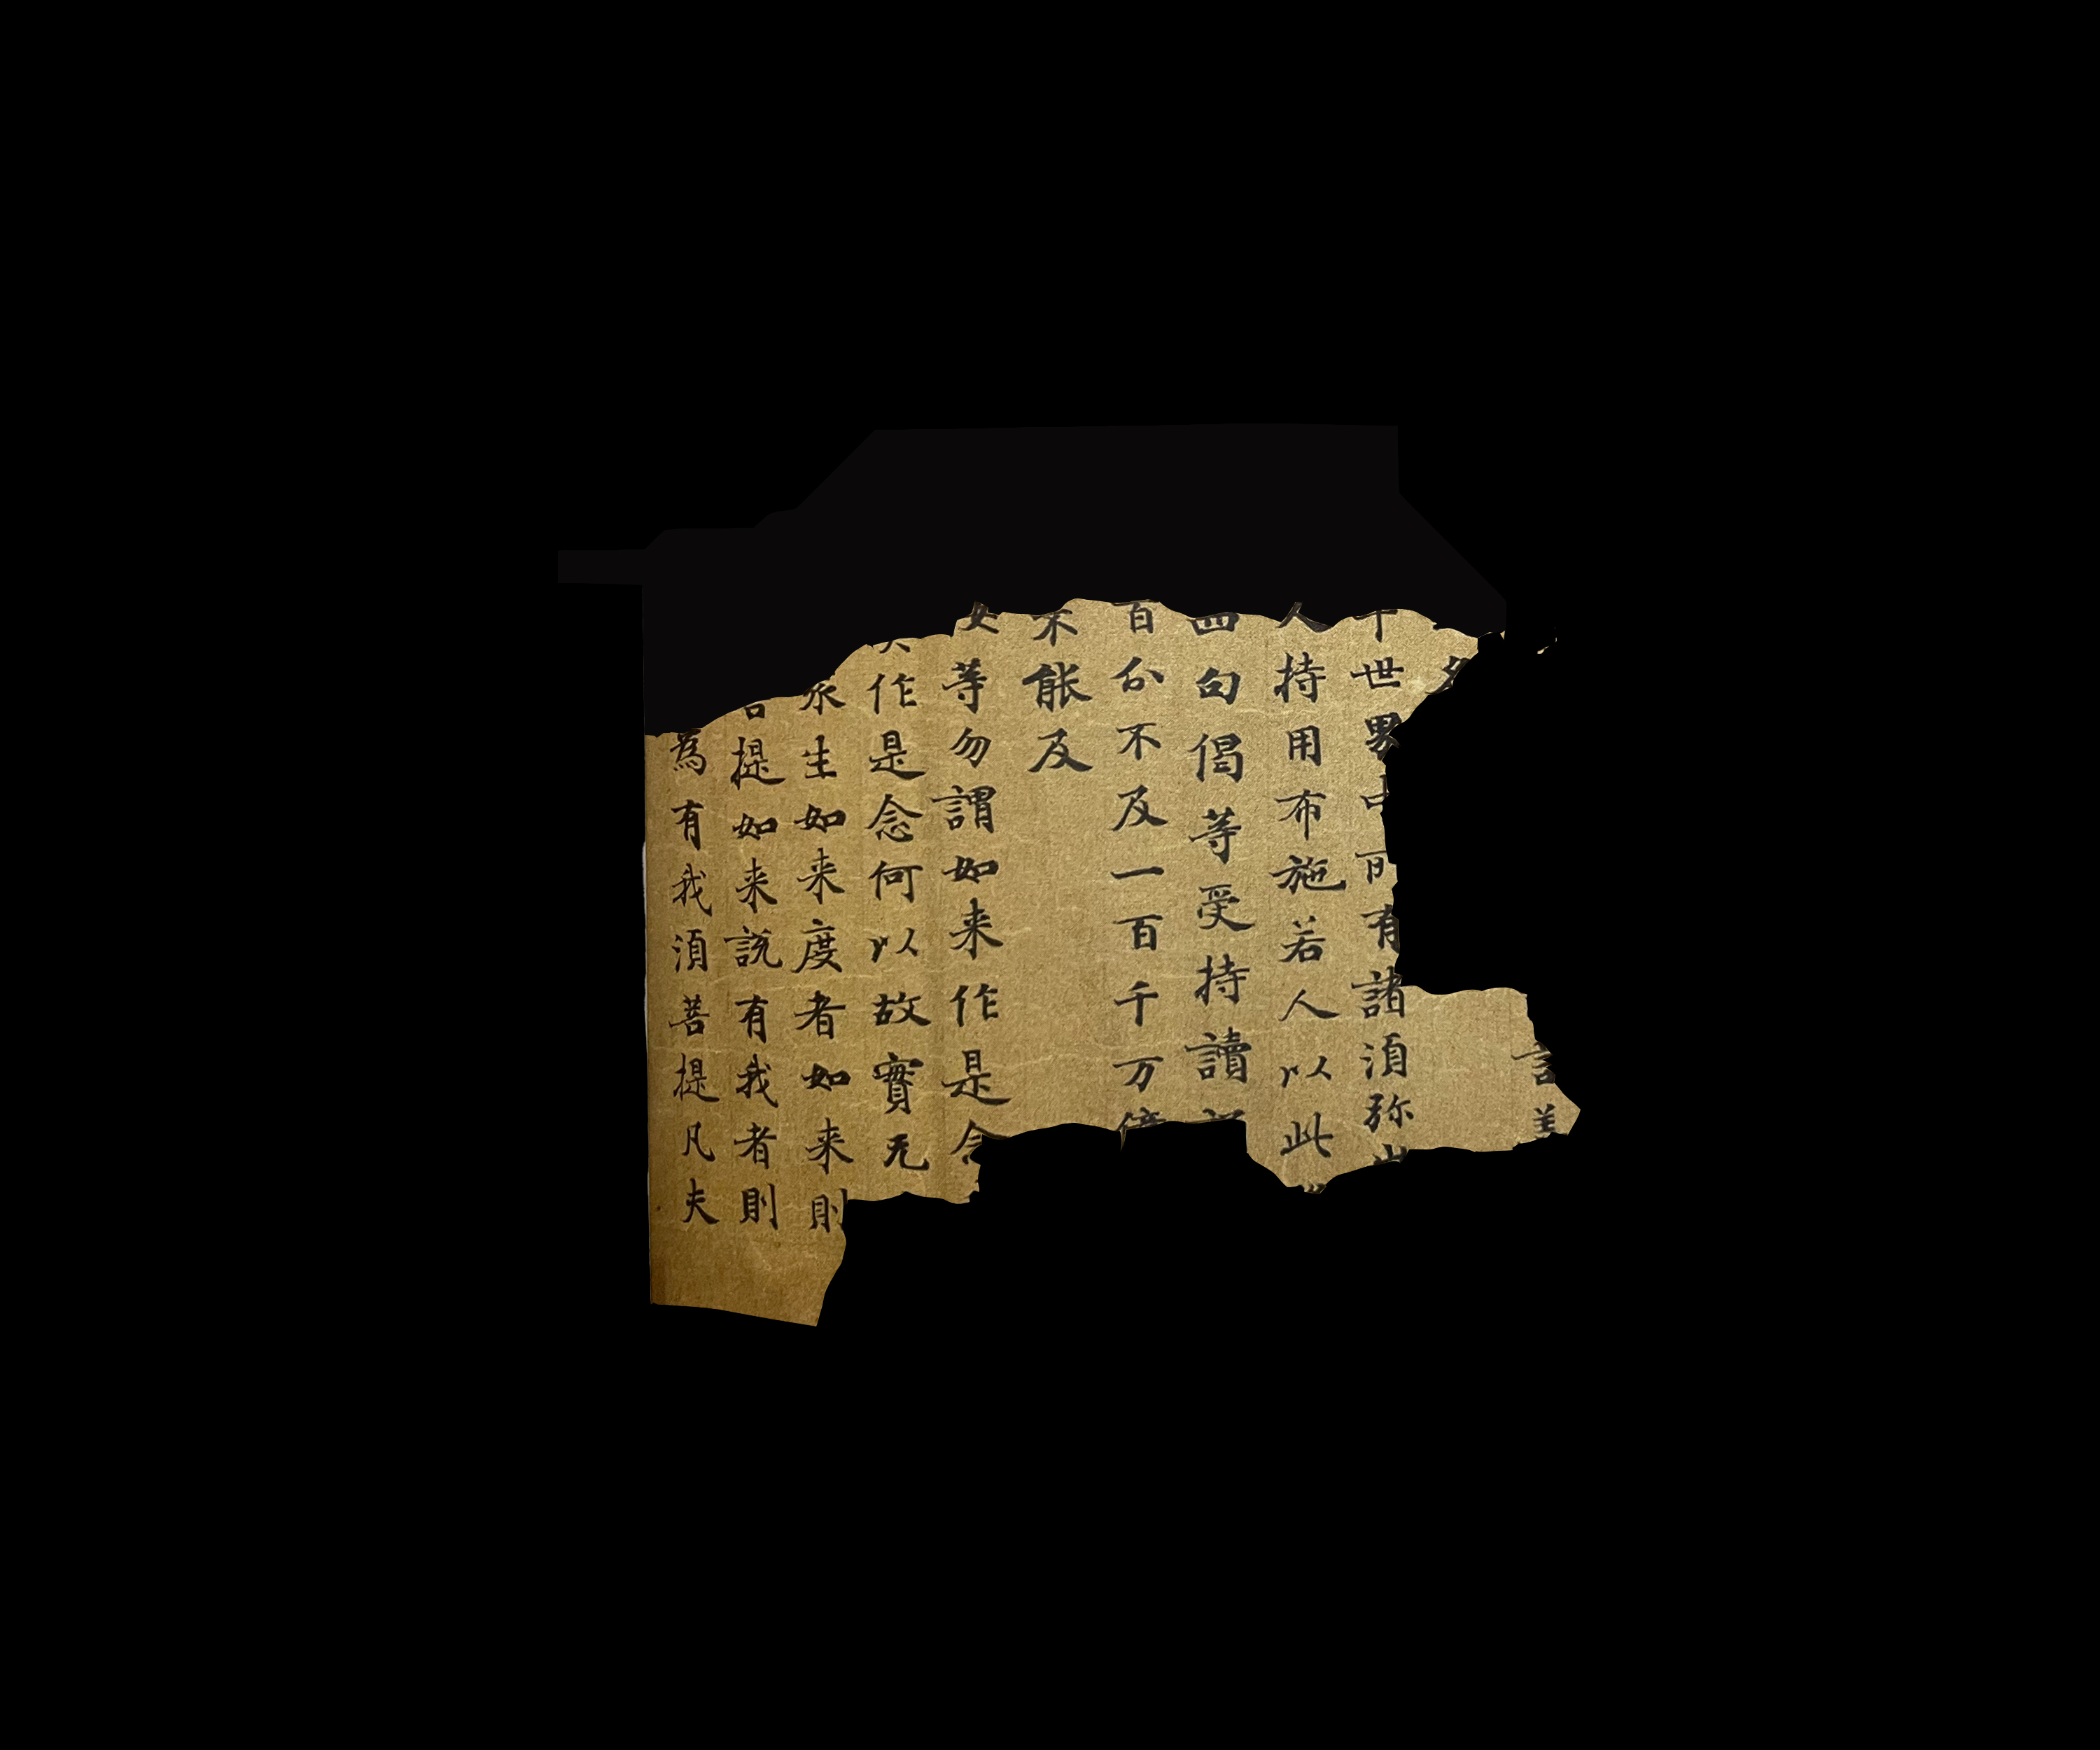 言善
世界中所有諸湏弥山
人持用布施若人以此
四句偈等受持讀
百分不及一百千万億
不能及
女等勿謂如来作是念
作是念何以故實无
生如来度者如来則
提如来說有我者則
為有我湏菩提凡夫